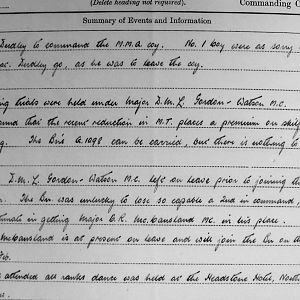 (Delete heading not required).
Commanding
Summary of Events and Information
Dudley to command the M.M.G. coy. No. 1 boy were as sorry
Dudley go, as he was to leave the coy.
trials were held under Major D.M.L. Gordon-Watson M.C.
that the recent reduction in M.T. places a premium on
The Bn's G.1098 can be carried, but there is nothing to
D.M.L. Gordon-Watson M.C. left on leave prior to joining the
The Bn was unlucky to lose so capable a 2nd in command,
in getting Major C.R. McCausland MC. in his place.
McCausland is at present on leave and will join the Bn on the
attended all ranks dance was held at the Headstone Hotel, North